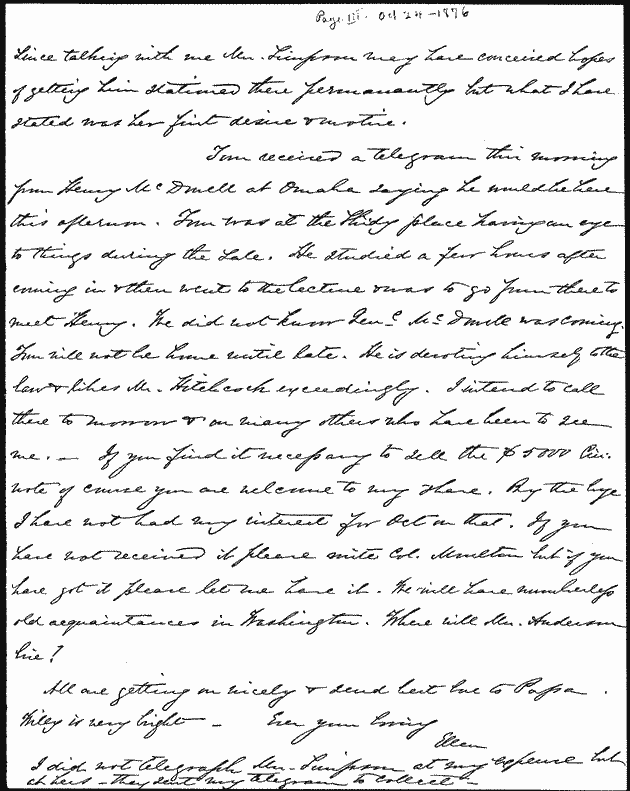 Page III. Oct 24 - 1876
Since talking with me Mrs. Simpson may have conceived hopes
of getting him stationed there permanantly but what I have
stated was her first desire & motive.
Tom received a telegram this morning
from Henry McDowell at Omaha saying he would be here
this afternoon. Tom was at the place having an eye
to things during the Sale. He studied a few hours after
coming in & then went to the lecture & was to go from there to
meet Henry. We did not know Genl McDowell was coming.
Tom will not be home until late. He is devoting himself to the
law & likes Mr. Hitchcock exceedingly. I intend to call
there to morrow & on many others who have been to see
me. — If you find it necessary to sell the $5000 Cin.
note of course you are welcome to my share. By the bye
I have not had my interest for Oct on that. If you
have not received it please write Col. Moulton but if you
have got it please let me have it. We will have numberless
old acquaintances in Washington. Where will Mrs. Anderson
live?
All are getting on nicely & send best love to Papa.
Willy is very bright — Ever your loving
Ellen
I did not telegraph Mrs. Simpson at my expense but
at hers — they sent my telegram to collect —